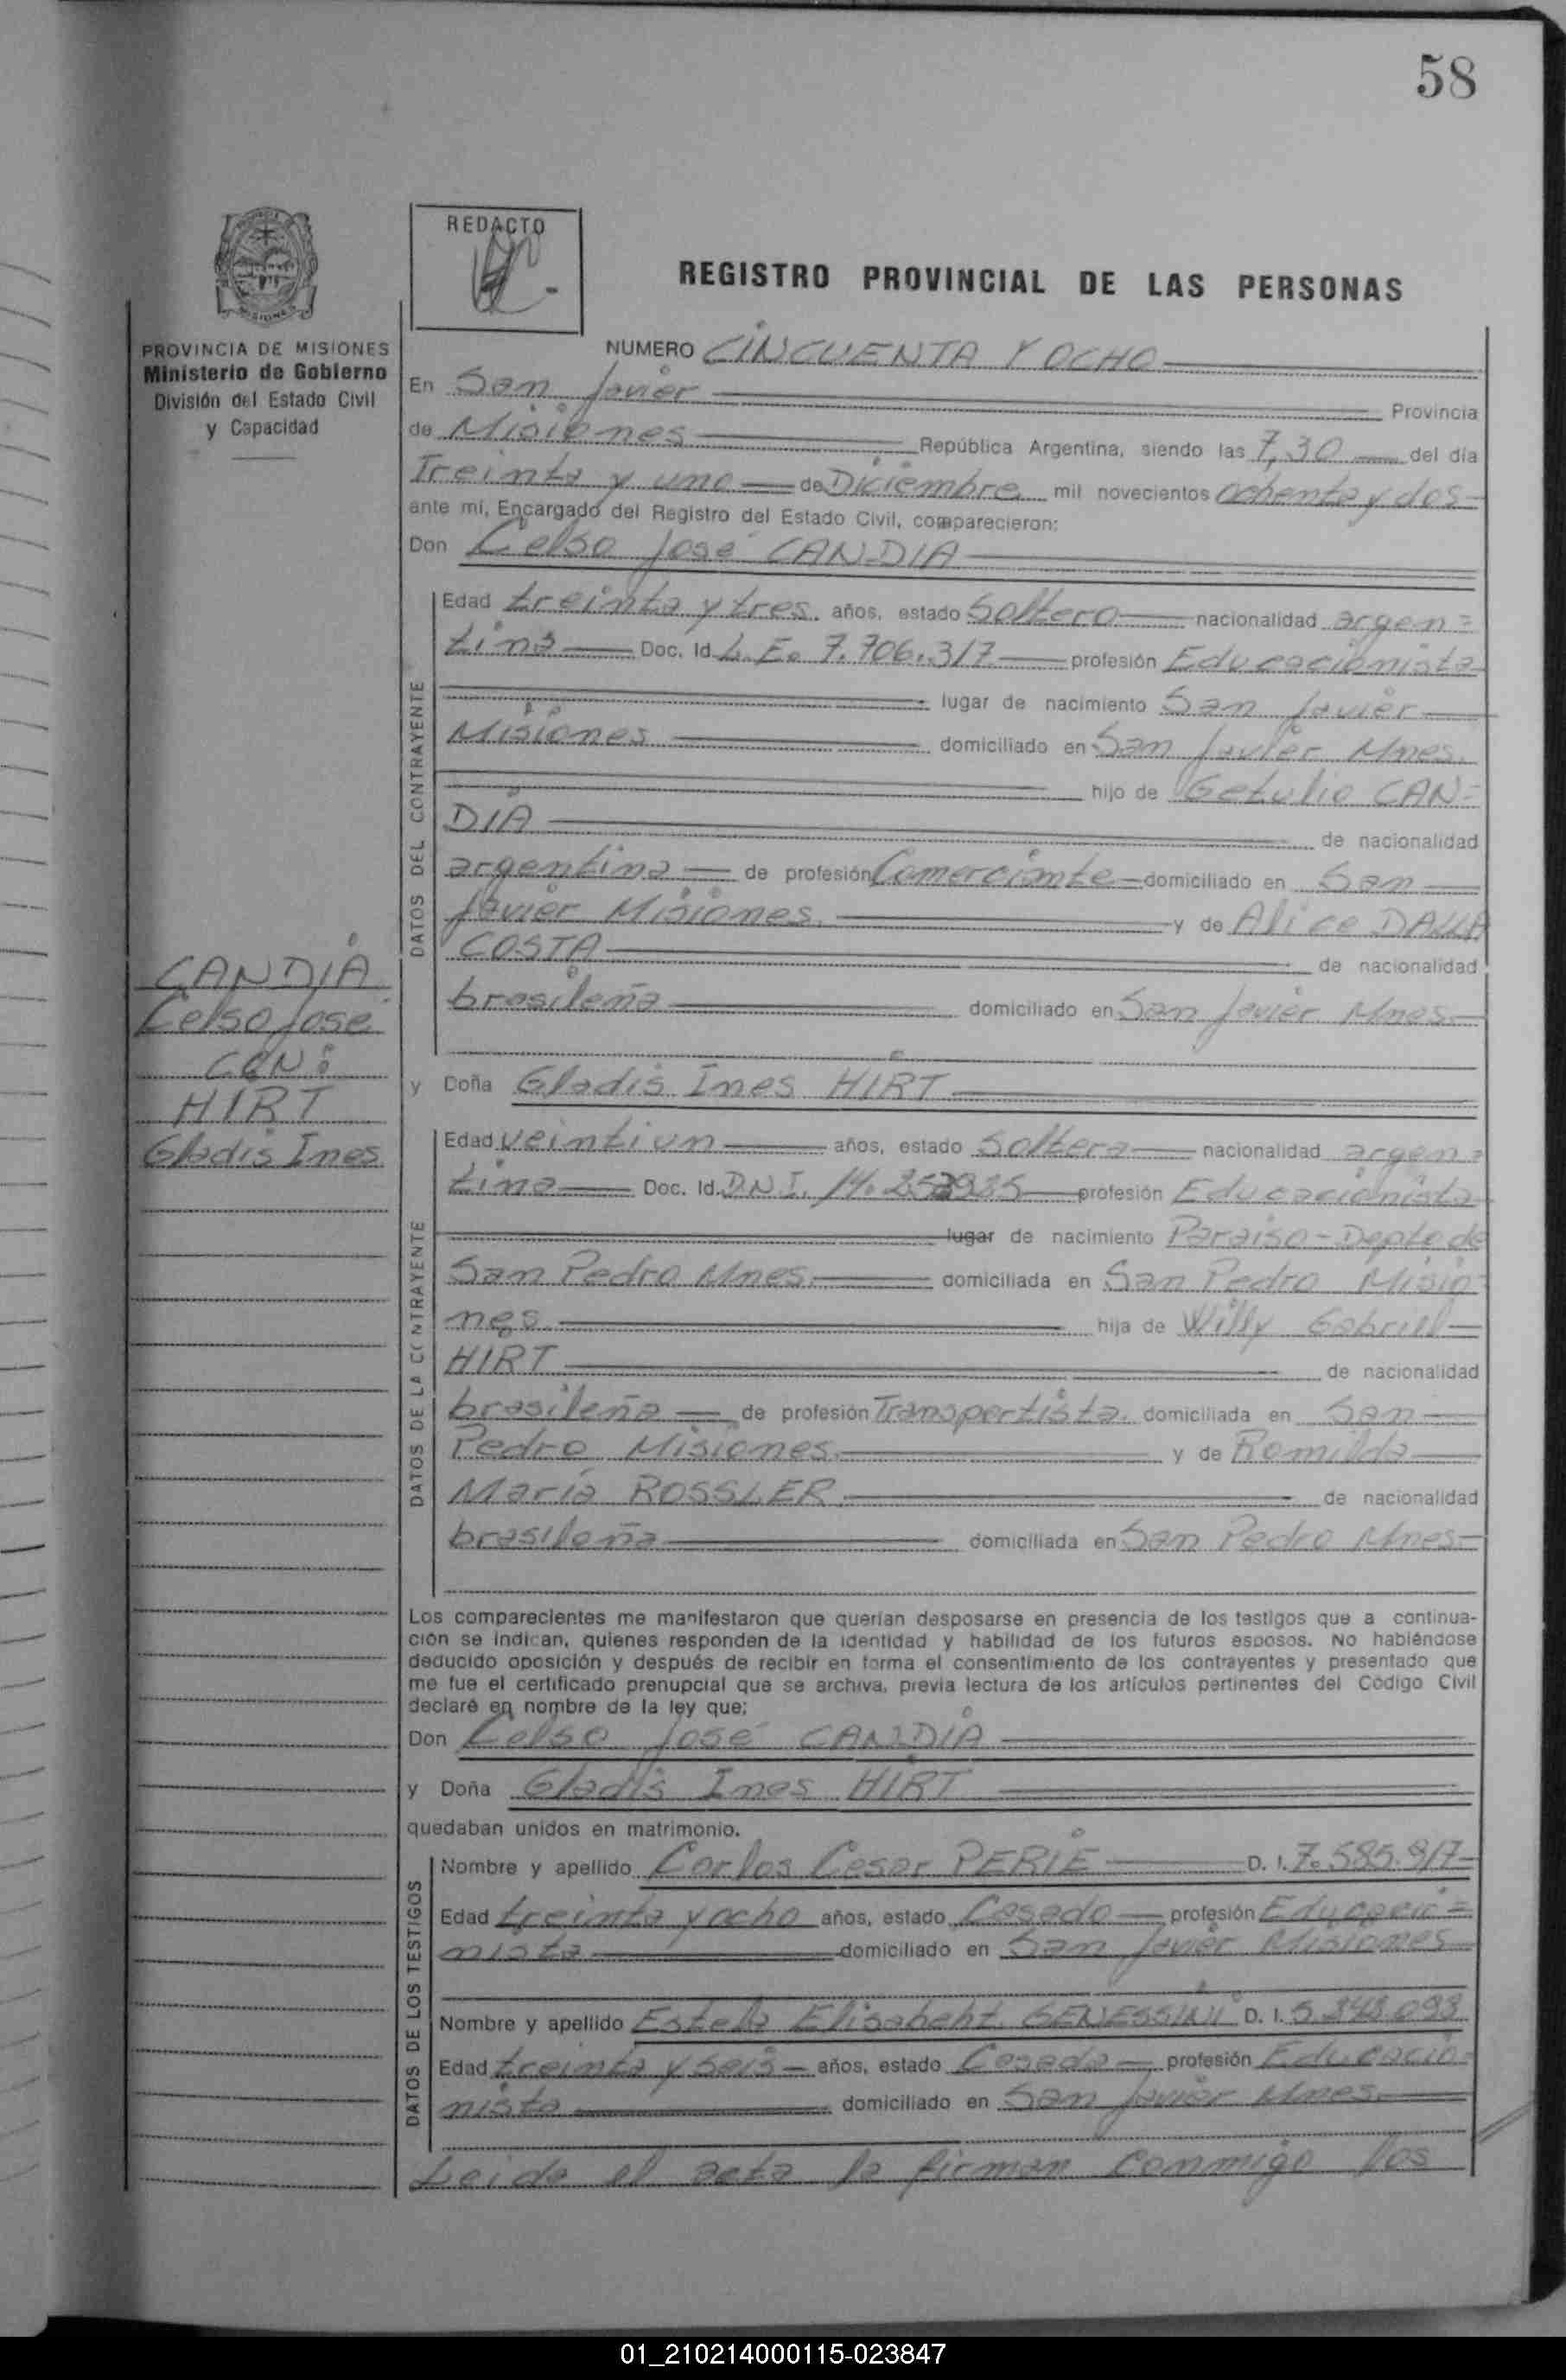 58
REDACTO
REGISTRO PROVINCIAL DE LAS PERSONAS
PROVINCIA DE MISIONES
Ministerio de Gobierno
División del Estado Civil
y Capacidad
NUMERO CINCUENTA Y OCHO
En San Javier Provincia
de Misiones República Argentina, siendo las 7,30 del día
Treinta y uno de Diciembre mil novecientos ochenta y dos
ante mí, Encargado del Registro del Estado Civil, comparecieron:
Don Celso José CANDIA
DATOS DEL CONTRAYENTE
Edad treinta y tres años, estado Soltero nacionalidad argen=
tina Doc. Id L.E. 7.706.317 profesión Educacionista
lugar de nacimiento San Javier
Misiones domiciliado en San Javier Mnes.
hijo de Getulio CAN=
DIA de nacionalidad
argentina de profesión Comerciante domiciliado en San
Javier Misiones. y de Alice DALLA
COSTA de nacionalidad
brasileña domiciliado en San Javier Mnes.
CANDIA
Celso José
CON:
HIRT
Gladis Ines
y Doña Gladis Ines HIRT
DATOS DE LA CONTRAYENTE
Edad veintiun años, estado Soltera nacionalidad argen=
tina Doc. Id. D.N.I. 14. profesión Educacionista
lugar de nacimiento Paraiso - Depto de
San Pedro Mnes. domiciliada en San Pedro Misio=
nes. hija de Willy Gabriel
HIRT de nacionalidad
brasileña de profesión Transportista. domiciliada en San
Pedro Misiones. y de Romilda
María ROSSLER. de nacionalidad
brasileña domiciliada en San Pedro Mnes.
Los comparecientes me manifestaron que querían desposarse en presencia de los testigos que a continua-
ción se indican, quienes responden de la identidad y habilidad de los futuros esposos. No habiéndose
deducido oposición y después de recibir en forma el consentimiento de los contrayentes y presentado que
me fue el certificado prenupcial que se archiva, previa lectura de los artículos pertinentes del Código Civil
declaré en nombre de la ley que:
Don Celso José CANDIA
y Doña Gladis Ines HIRT
quedaban unidos en matrimonio.
DATOS DE LOS TESTIGOS
Nombre y apellido Carlos Cesar PERIE D. I. 7.585.917
Edad treinta y ocho años, estado Casado profesión Educacio=
nista domiciliado en San Javier Misiones
Nombre y apellido Estela Elisabeht GENESSINI D. I. 5.
Edad treinta y seis años, estado Casada profesión Educacio=
nista domiciliado en San Javier Mnes.
Leida el acta la firman conmigo los
01_210214000115-023847